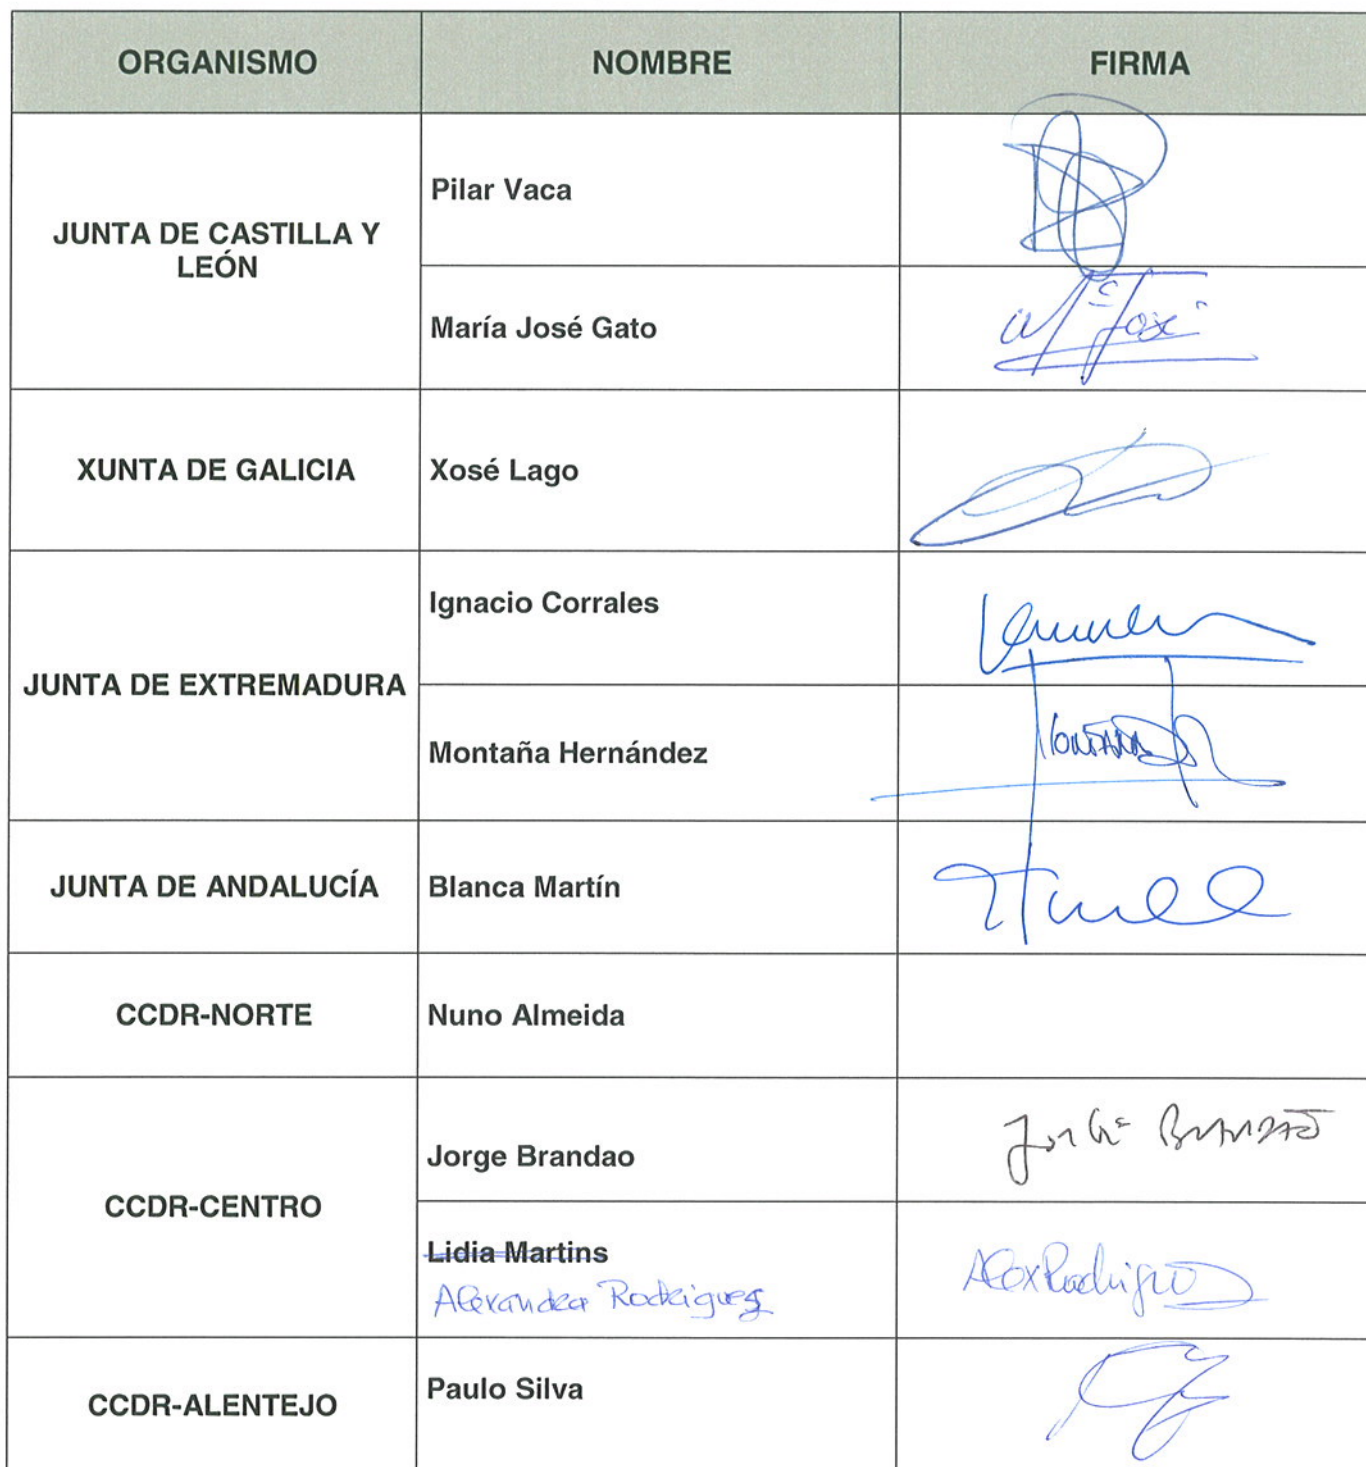 ORGANISMO NOMBRE FIRMA
JUNTA DE CASTILLA Y
LEÓN
Pilar Vaca
María José Gato
Mª José
XUNTA DE GALICIA
Xosé Lago
JUNTA DE EXTREMADURA
Ignacio Corrales
Montaña Hernández
MONTAÑA
JUNTA DE ANDALUCÍA
Blanca Martín
CCDR-NORTE
Nuno Almeida
CCDR-CENTRO
Jorge Brandao
Jorge BRANDÃO
Lidia Martins
Alexandra Rodrigues
Alex Rodrigues
CCDR-ALENTEJO
Paulo Silva